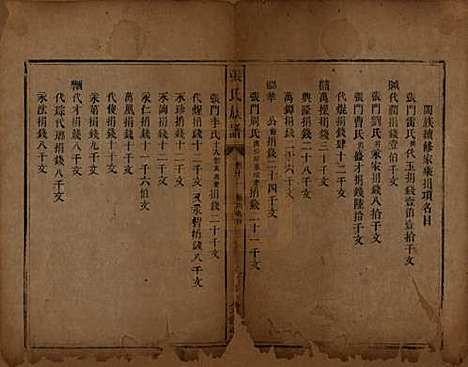 闔族續修家乘捐項名目
張門張氏男代玉捐錢壹佰壹拾千文
代潤捐錢壹伯千文
張門劉氏男永家捐錢八拾千文
張門曹氏男盛才捐錢陸拾千文
代焜捐錢肆十二千文
萬操捐錢三十千文
興隆捐錢二十千文
華公捐錢二十四千文
張門周氏捐錢二十一千文
萬鎰捐錢二十千文
張氏族譜
張門李氏捐錢二十一千文
代焜捐錢二十千文 又永彰捐錢八千文
永珍捐錢十二千文
永海捐錢十二千文
永仁捐錢十一千六伯文
萬鳳捐錢十千文
代俊捐錢十千文
永第捐錢八千文
代才捐錢八千文
代琮代瑯捐錢八千文
永法捐錢八千文